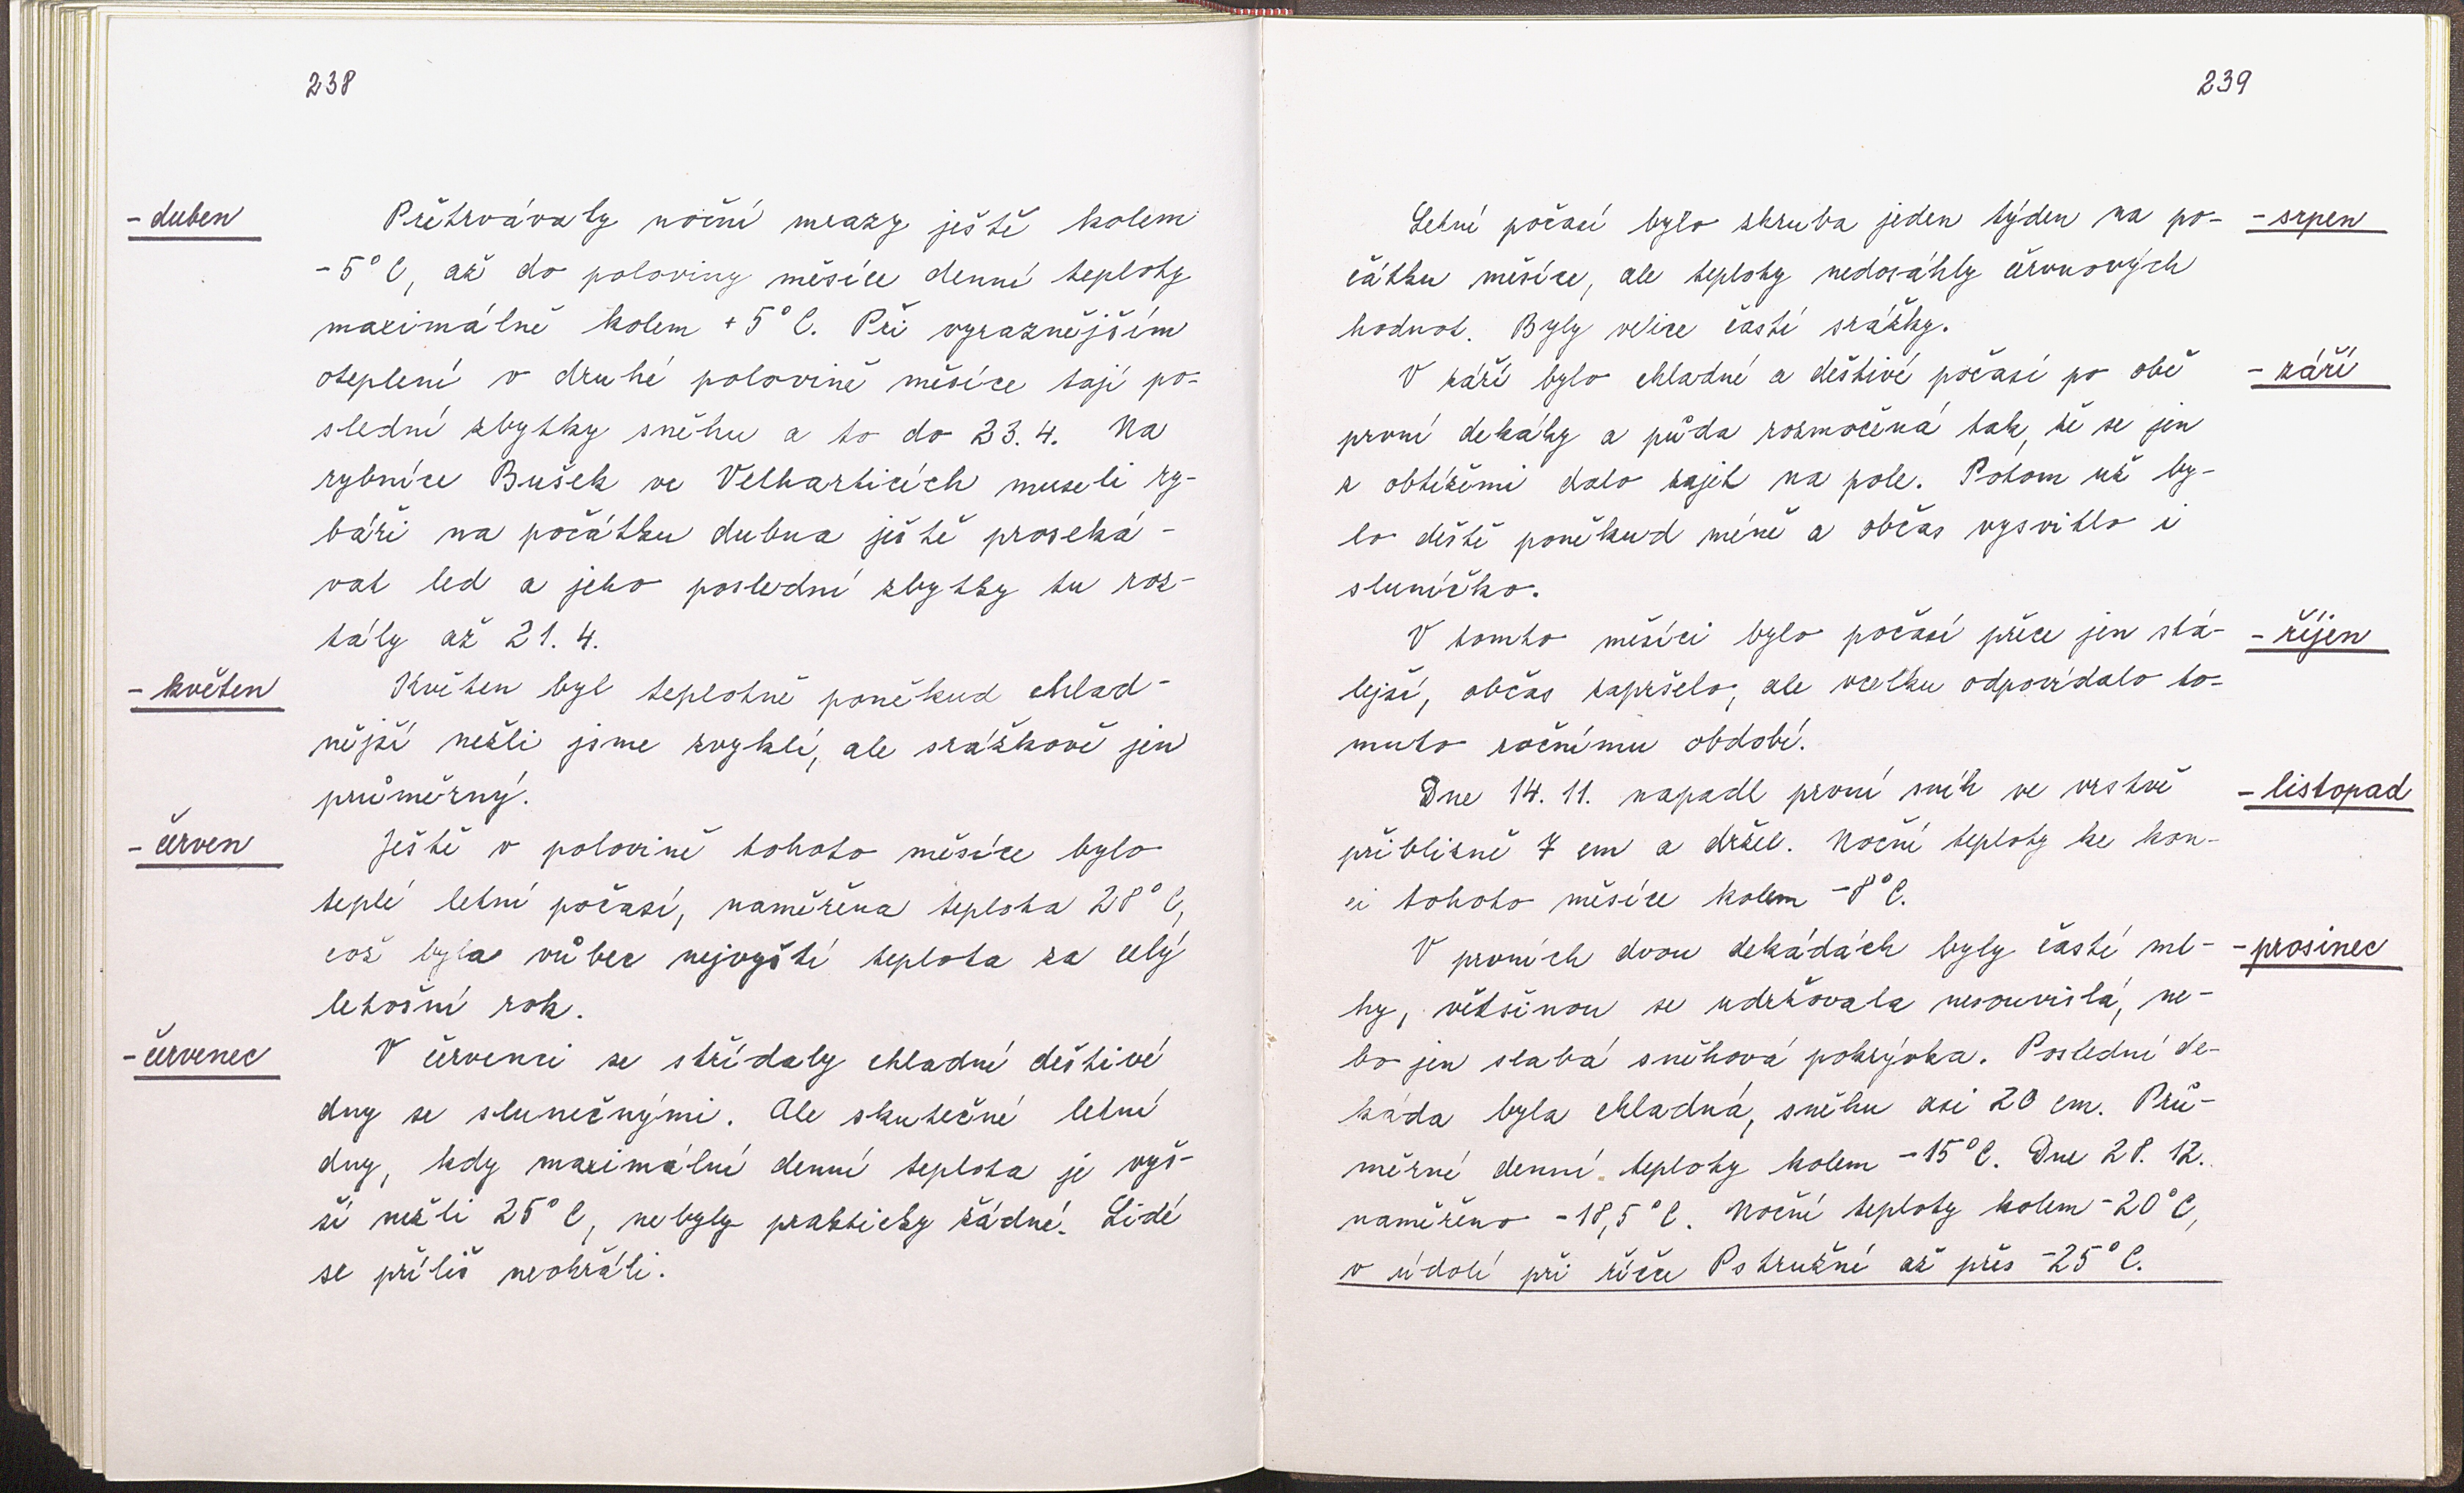 238
- duben
Přetrvávaly noční mrazy ještě kolem
-5°C, až do poloviny měsíce denní teploty
maximálně kolem +5°C. Při vyraznějším
oteplení v druhé polovině měsíce tají po-
slední zbytky sněhu a to do 23. 4. Na
rybníce Bušek ve Velharticích museli ry-
báři na počátku dubna ještě proseká-
vat led a jeho poslední zbytky tu roz-
tály až 21. 4.
- květen
Květen byl teplotně poněkud chlad-
nější nežli jsme zvyklí, ale srážkově jen
průměrný.
- červen
Ještě v polovině tohoto měsíce bylo
teplé letní počasí, naměřena teplota 28°C,
což byla vůbec nejvyšší teplota za celý
letošní rok.
- červenec
V červenci se střídaly chladné deštivé
dny se slunečnými. Ale skutečné letní
dny, kdy maximální denní teplota je vyš-
ší nežli 25°C, nebyly prakticky žádné. Lidé
se příliš neohřáli.
239
Letní počasí bylo zhruba jeden týden na po-
- srpen
čátku měsíce, ale teploty nedosáhly červnových
hodnot. Byly velice časté srážky.
V září bylo chladné a deštivé počasí po obě
- září
první dekády a půda rozmočená tak, že se jen
z obtížemi dalo zajet na pole. Potom už by-
lo deště poněkud méně a občas vysvitlo i
sluníčko.
V tomto měsíci bylo počasí přece jen stá-
- říjen
lejší, občas zapršelo, ale vcelku odpovídalo to-
muto ročnímu období.
Dne 14. 11. napadl první sníh ve vrstvě
- listopad
přibližně 7 cm a držel. Noční teploty ke kon-
ci tohoto měsíce kolem -8°C.
V prvních dvou dekádách byly časté ml-
- prosinec
hy, většinou se udržovala nesouvislá, ne-
bo jen slabá sněhová pokrývka. Poslední de-
káda byla chladná, sněhu asi 20 cm. Prů-
měrné denní teploty kolem -15°C. Dne 28. 12.
naměřeno -18,5°C. Noční teploty kolem -20°C,
v údolí při říčce Pstružné až přes -25°C.